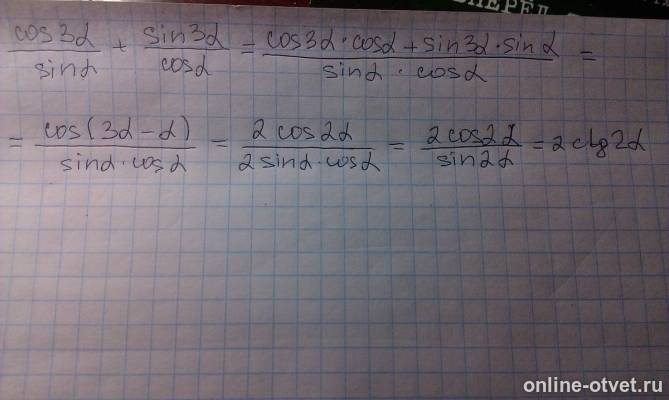 ПЕРЕД
cos3α/sinα + sin3α/cosα = (cos3α·cosα + sin3α·sinα)/(sinα·cosα) =
= cos(3α-α)/(sinα·cosα) = 2cos2α/(2sinα·cosα) = 2cos2α/sin2α = 2ctg2α
online-otvet.ru